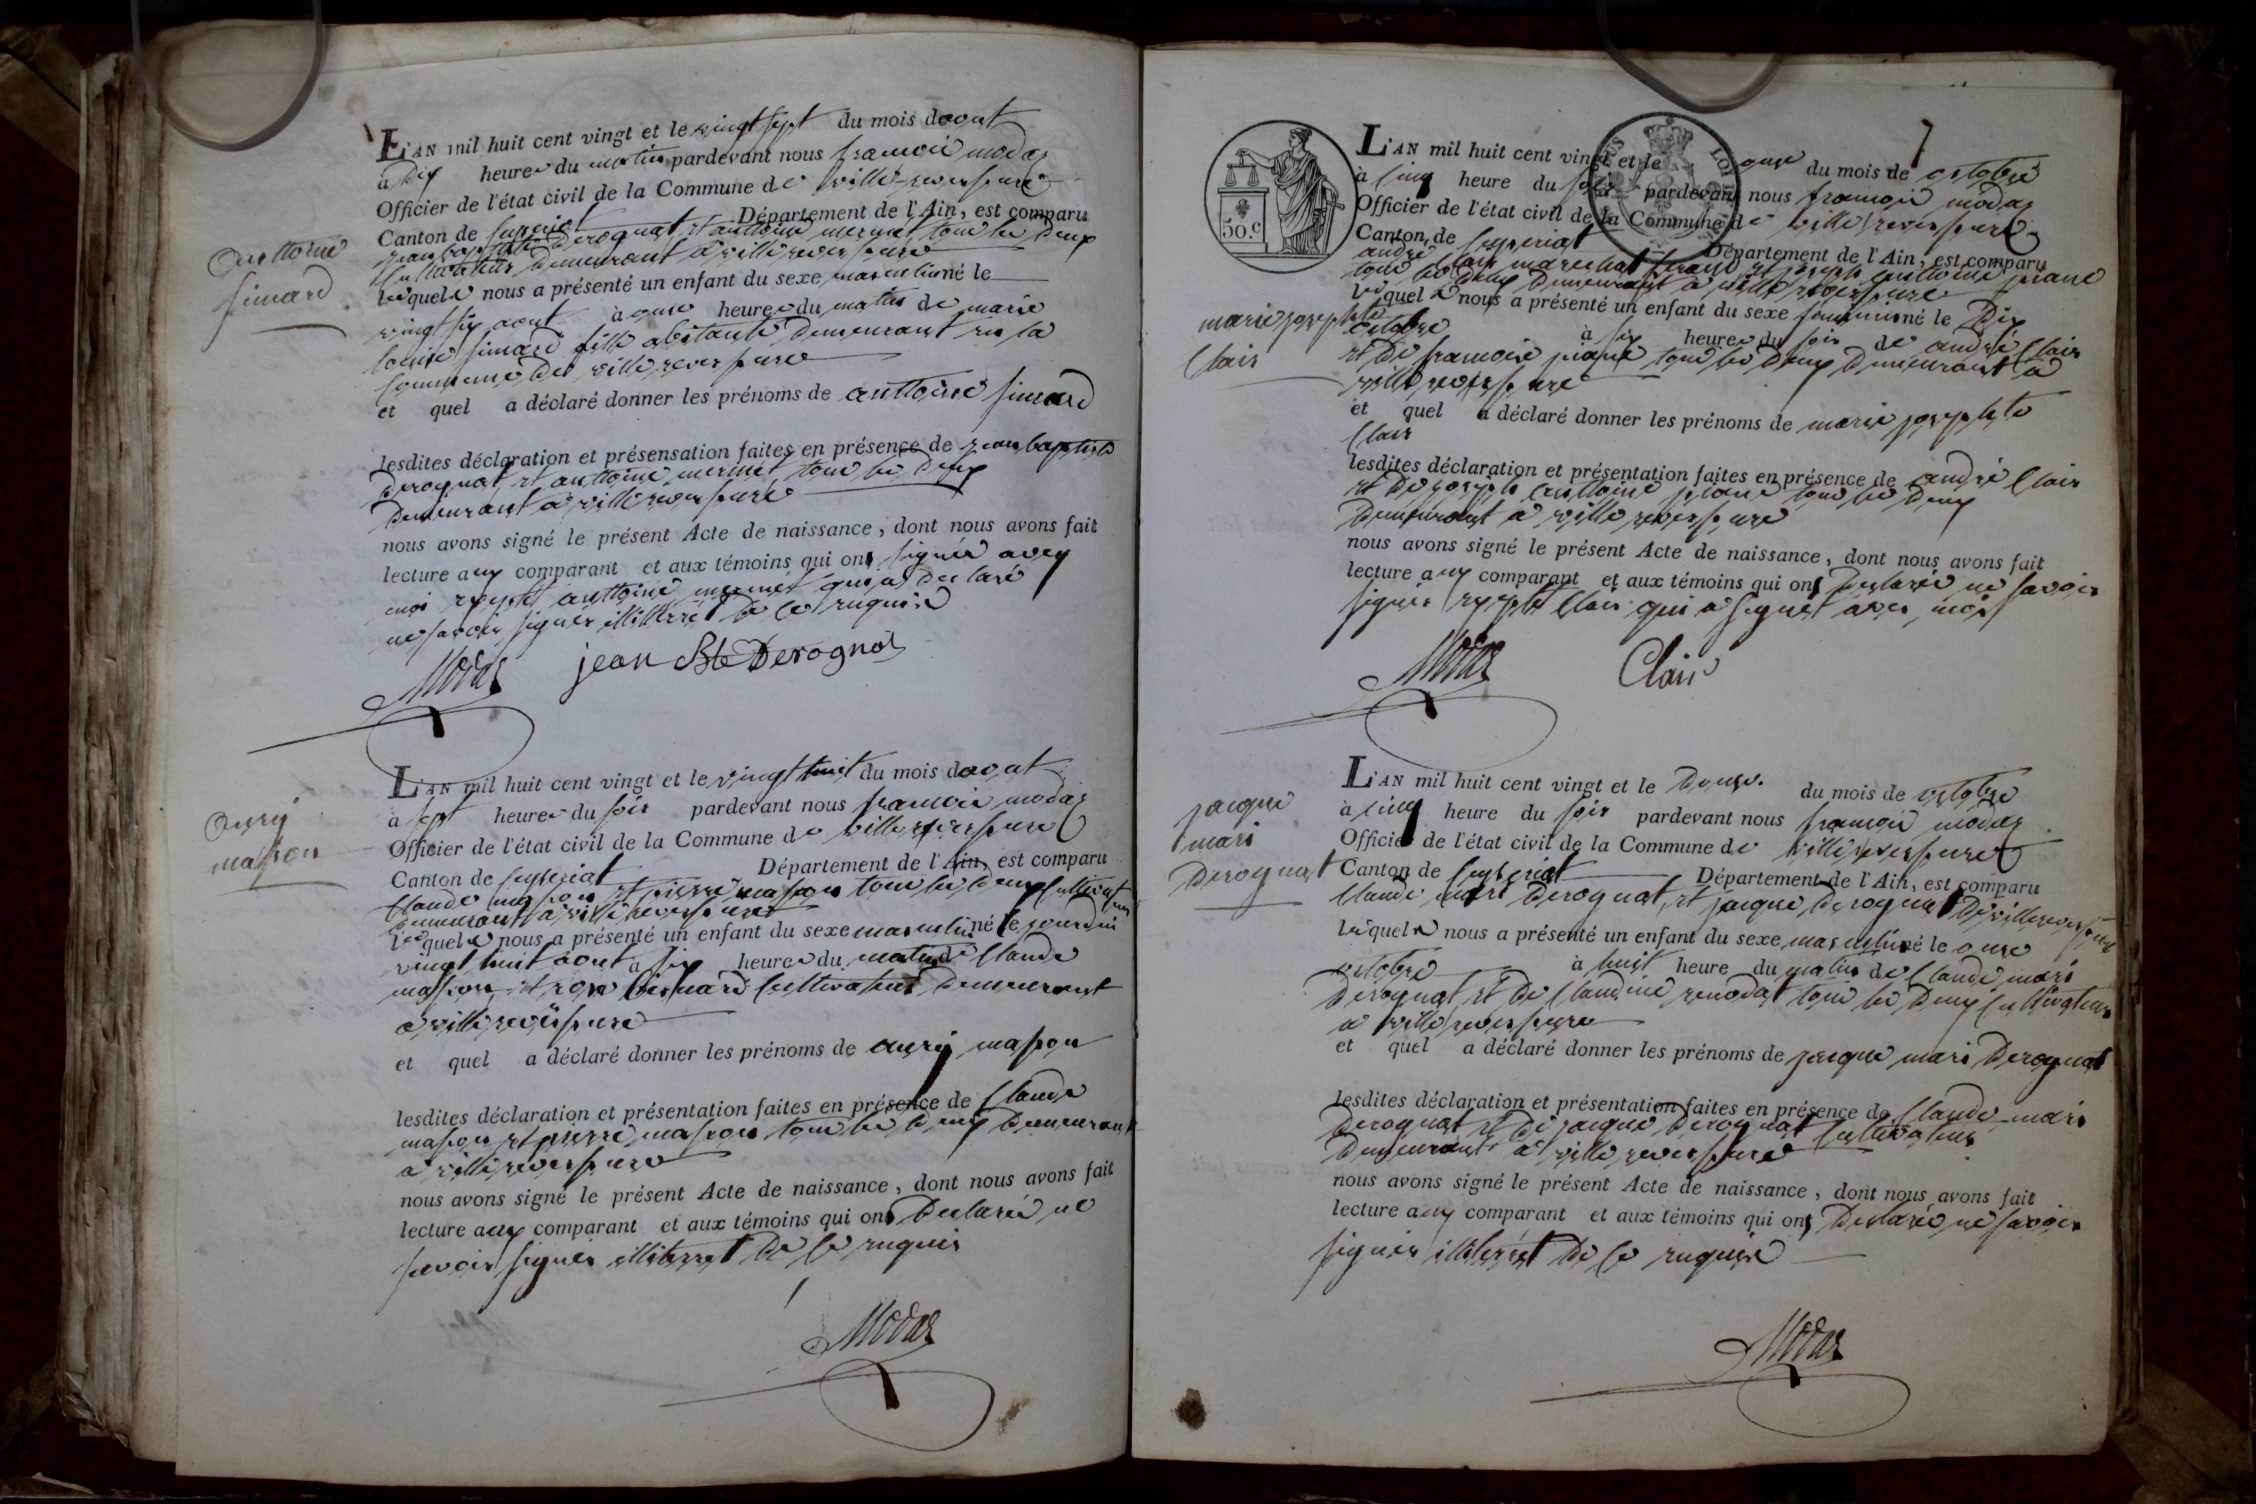 anttoine
simard
L'AN mil huit cent vingt et le vingt sept du mois daout
à dix heures du matin pardevant nous francois modas
Officier de l'état civil de la Commune de villereversure
Canton de ceyseriat Département de l'Ain, est comparu
jean baptiste derognat et anttoine mermet tous les deux
cultivateurs demeurant a villereversure
lesquels nous a présenté un enfant du sexe masculin né le
vingt six aout à onze heures du matin de marie
louise simard fille abitante demeurant sur la
commune de villereversure
et quel a déclaré donner les prénoms de anttoine simard
lesdites déclaration et présensation faites en présence de jean baptiste
derognat et anttoine mermet tous les deux
demeurant a villereversure
nous avons signé le présent Acte de naissance, dont nous avons fait
lecture aux comparant et aux témoins qui ont signée avey
moi exepté anttoine mermet qui a declaré
ne savoir signer illiterré de ce requis
Modas jean Bte Derognat
aury
masson
L'AN mil huit cent vingt et le vingt huit du mois daout
à sept heures du soir pardevant nous francois modas
Officier de l'état civil de la Commune de villereversure
Canton de ceyseriat Département de l'Ain, est comparu
Claude masson et pierre masson tous les deux cultivateurs
demeurant a villereversure
lesquels nous a présenté un enfant du sexe masculin né le jourdui
vingt huit aout à six heures du matin de Claude
masson et rose besnard cultivateurs demeurant
a villereversure
et quel a déclaré donner les prénoms de aury masson
lesdites déclaration et présentation faites en présence de Claude
masson et pierre masson tous les deux demeurant
a villereversure
nous avons signé le présent Acte de naissance, dont nous avons fait
lecture aux comparant et aux témoins qui ont declarée ne
savoir signer illiterret de ce requis
Modas
7
50.c
marie josephte
Clair
L'AN mil huit cent vingt et le onze du mois de octobre
à cinq heure du soir pardevant nous francois modas
Officier de l'état civil de la Commune de villereversure
Canton de ceyseriat Département de l'Ain, est comparu
andré Clair marechal ferand et joseph anttoine piane
tous les deux demeurant a villereversure
lesquels nous a présenté un enfant du sexe feminin né le dix
octobre à six heures du soir de andré Clair
et de francoise piane tous les deux demeurant a
villereversure
et quel a déclaré donner les prénoms de marie josephte
Clair
lesdites déclaration et présentation faites en présence de andré Clair
et de joseph anttoine piane tous les deux
demeurant a villereversure
nous avons signé le présent Acte de naissance, dont nous avons fait
lecture aux comparant et aux témoins qui ont declarée ne savoir
signer exepté Clair qui a signet avec moi
Modas Clair
jacque
mari
derognat
L'AN mil huit cent vingt et le douze. du mois de octobre
à cinq heure du soir pardevant nous francois modas
Officier de l'état civil de la Commune de villereversure
Canton de ceyseriat Département de l'Ain, est comparu
Claude mari derognat, et jacque derognat de villereversure
lesquels nous a présenté un enfant du sexe masculin né le onze
octobre à huit heure du matin de Claude mari
derognat et de Claudine renodat tous les deux cultivateurs
a villereversure
et quel a déclaré donner les prénoms de jacque mari derognat
lesdites déclaration et présentation faites en présence de Claude mari
derognat et de jacque derognat cultivateurs
demeurants a villereversure
nous avons signé le présent Acte de naissance, dont nous avons fait
lecture aux comparant et aux témoins qui ont declarée ne savoir
signer illiterret de ce requise
Modas